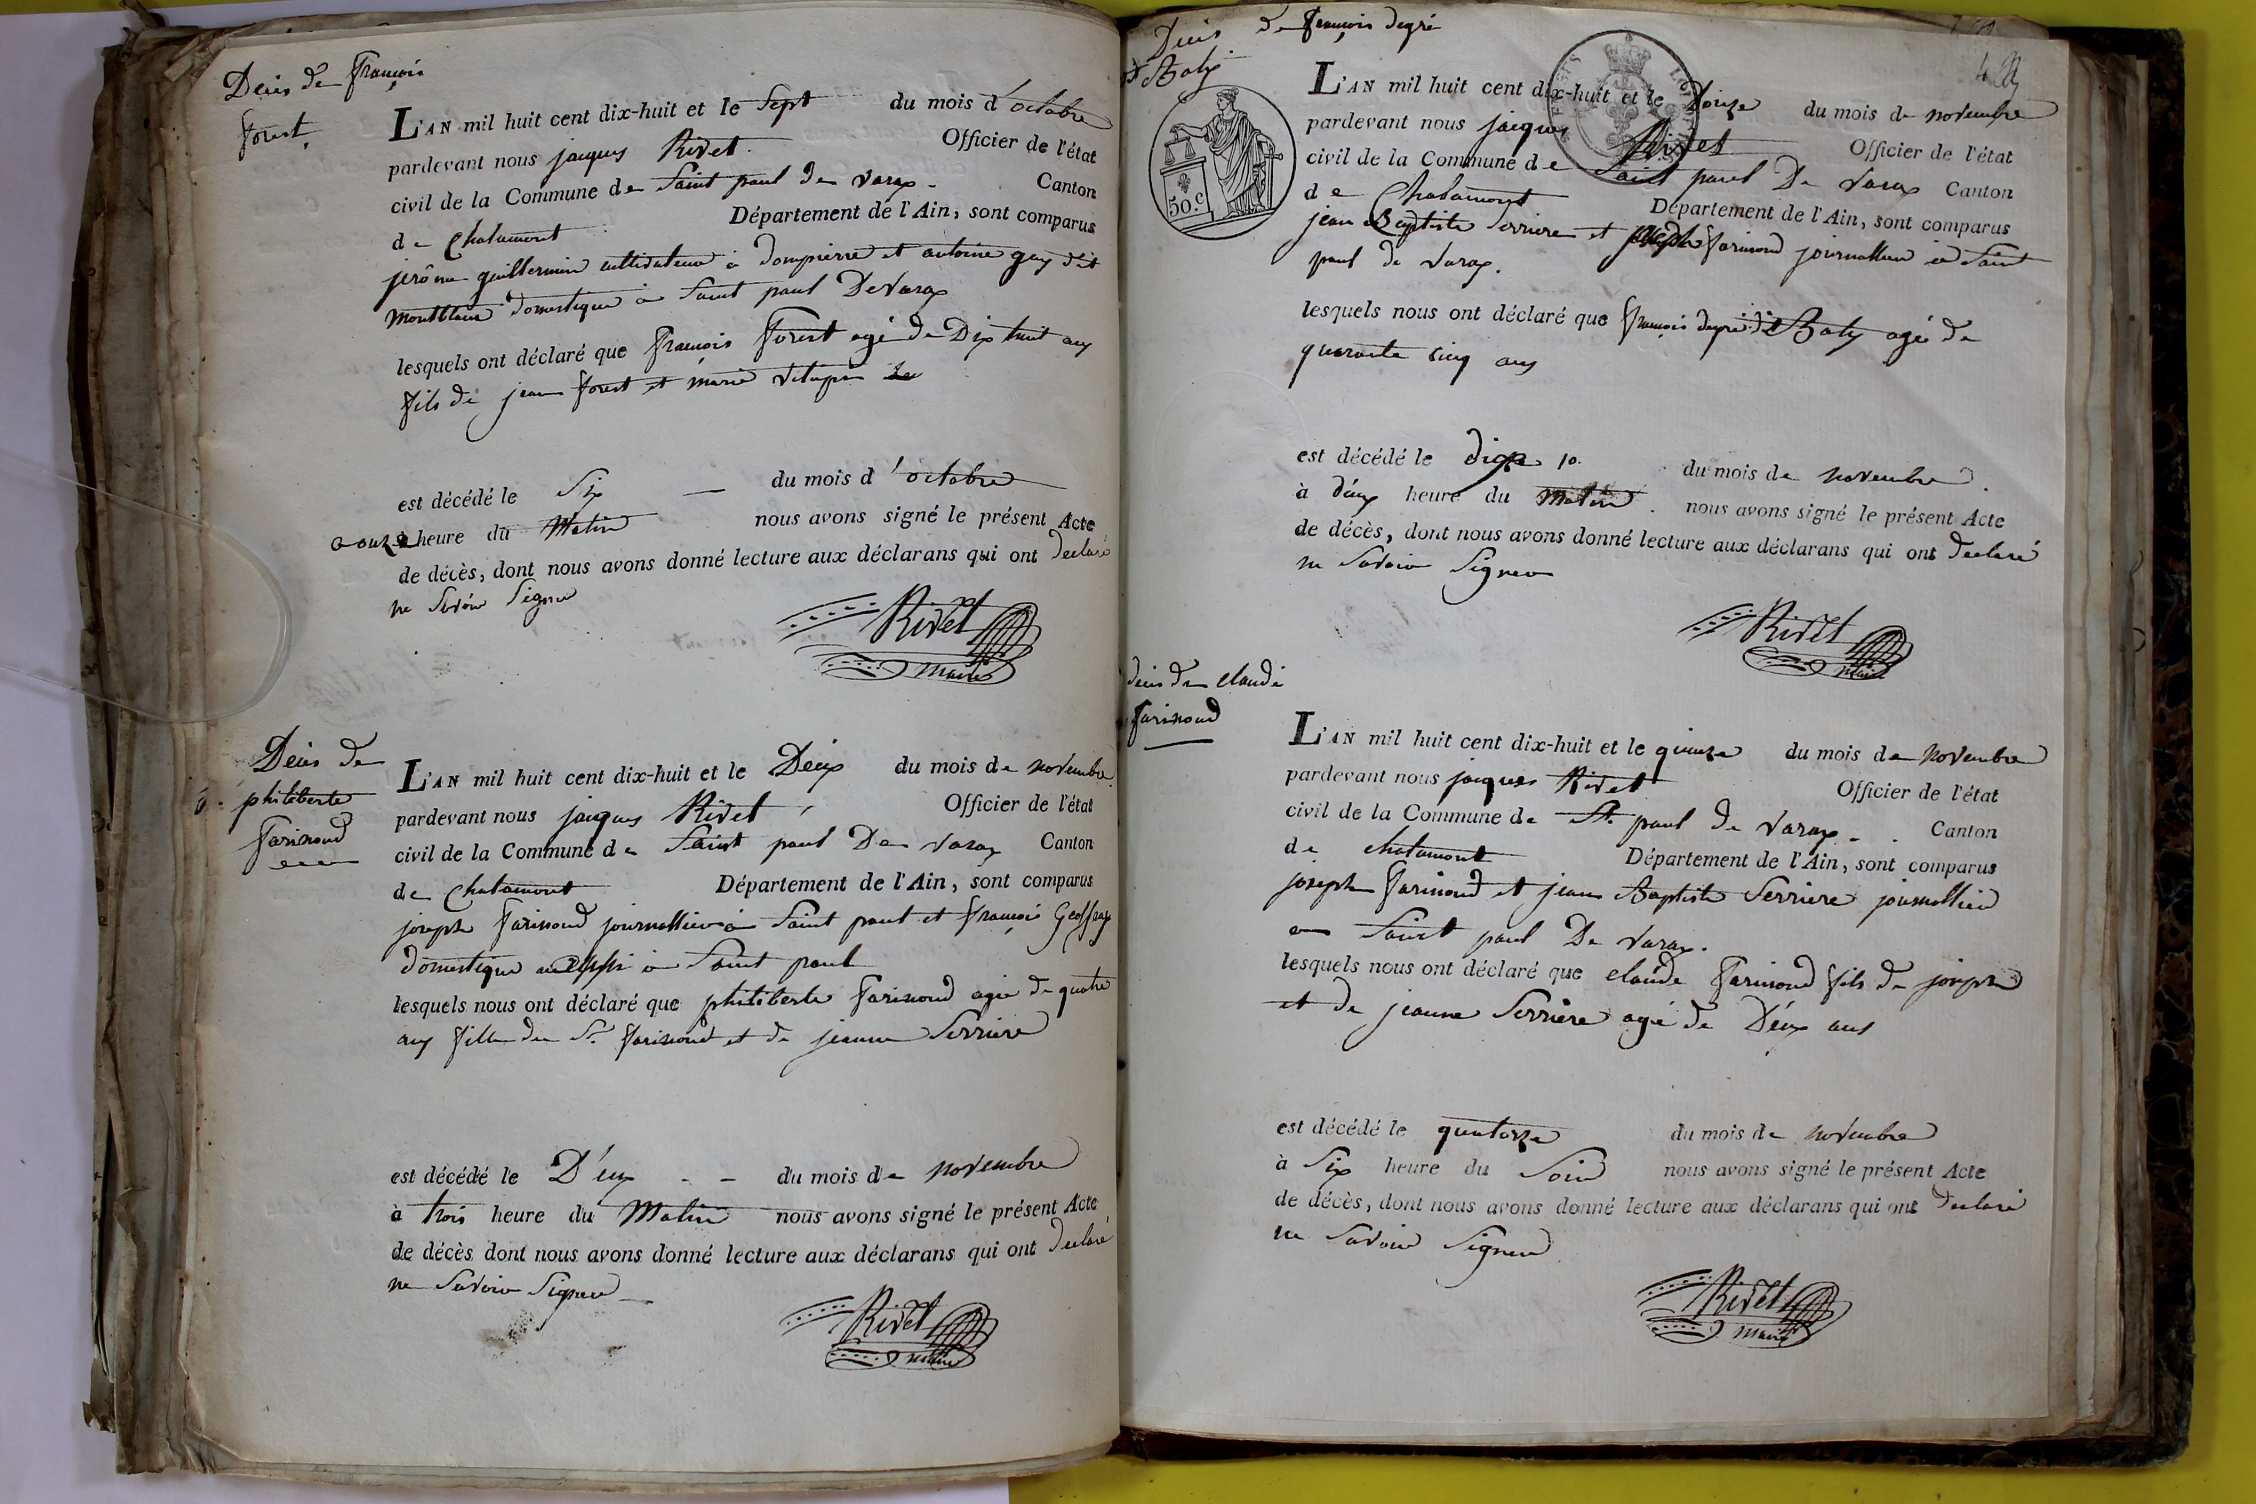 Décès de françois
forest
L'AN mil huit cent dix-huit et le Sept du mois d'octobre
pardevant nous jacques Rivet Officier de l'état
civil de la Commune de Saint paul De varax Canton
de Chalamont Département de l'Ain, sont comparus
jérôme guillermin cultivateur à dompierre et antoine guy dit
domestique à Saint paul De Varax
lesquels ont déclaré que françois forest agé de Dix huit ans
fils de jean forest et marie
est décédé le Six du mois d'octobre
a onze heure du Matin nous avons signé le présent Acte
de décès, dont nous avons donné lecture aux déclarans qui ont declaré
ne Savoir Signer
Rivet
maire
Décès De
philiberte
farissoud
L'AN mil huit cent dix-huit et le Deux du mois de novembre
pardevant nous jacques Rivet Officier de l'état
civil de la Commune de Saint paul De varax Canton
de Chalamont Département de l'Ain, sont comparus
joseph farissoud journallier à Saint paul et françois Geoffray
domestique aussi à Saint paul
lesquels nous ont déclaré que philiberte farissoud agée de quatre
ans fille du St. farissoud et de jeanne Serriere
est décédé le Deux du mois de novembre
à trois heure du Matin nous avons signé le présent Acte
de décès dont nous avons donné lecture aux déclarans qui ont declaré
ne Savoir Signer
Rivet
maire
Décès de françois degré
dt Baly
50.c
L'AN mil huit cent dix-huit et le Douze du mois de novembre
pardevant nous jacques Rivet Officier de l'état
civil de la Commune de Saint paul De varax Canton
de Chalamont Département de l'Ain, sont comparus
jean Baptiste Serriere et joseph farissoud journallier à Saint
paul de varax.
lesquels nous ont déclaré que françois degré dit Baly agé de
quarante cinq ans
est décédé le dix 10. du mois de novembre
à deux heure du Matin nous avons signé le présent Acte
de décès, dont nous avons donné lecture aux déclarans qui ont declaré
ne Savoir Signer
Rivet
maire
décès de claude
farissoud
L'AN mil huit cent dix-huit et le quinze du mois de novembre
pardevant nous jacques Rivet Officier de l'état
civil de la Commune de St. paul de varax Canton
de chalamont Département de l'Ain, sont comparus
joseph farissoud et jean Baptiste Serriere journallier
a Saint paul De varax.
lesquels nous ont déclaré que claude farissoud fils de joseph
et de jeanne Serriere agé de Deux ans
est décédé le quatorze du mois de novembre
à Six heure du Soir nous avons signé le présent Acte
de décès, dont nous avons donné lecture aux déclarans qui ont declaré
ne Savoir Signer
Rivet
maire